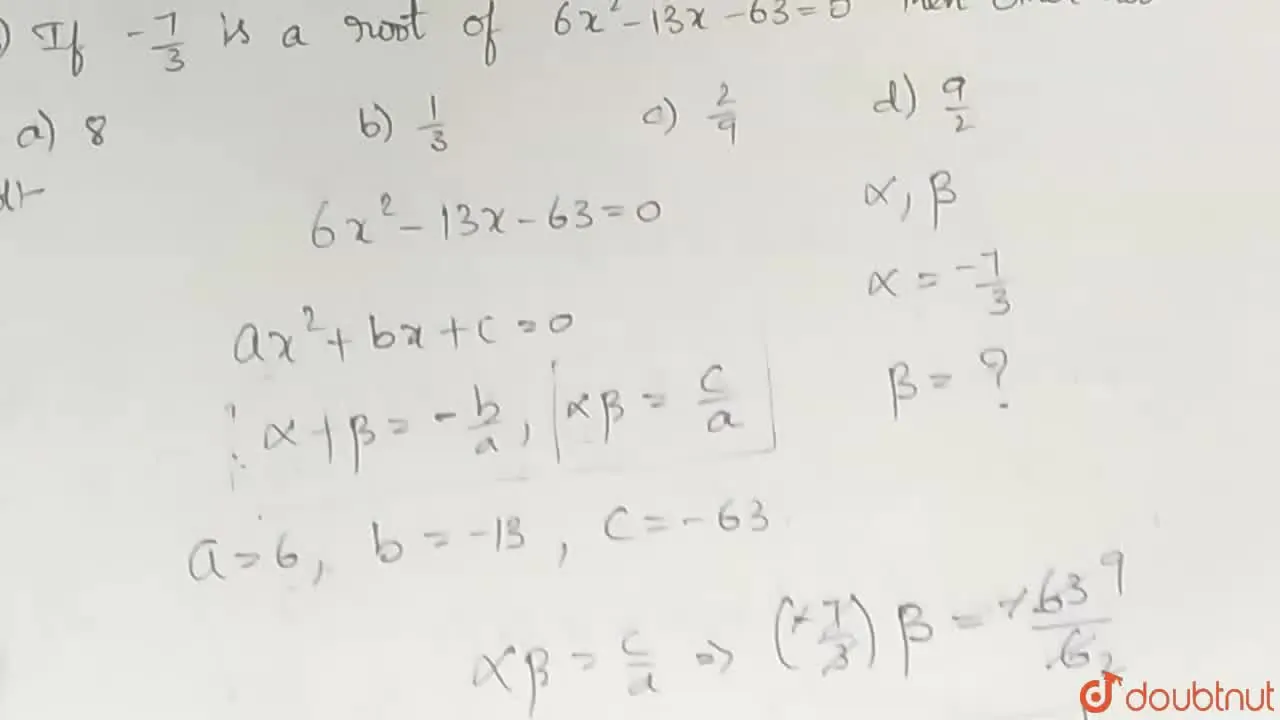 If -7/3 is a root of 6x² - 13x - 63 = 0 then other
a) 8 b) 1/3 c) 2/9 d) 9/2
6x² - 13x - 63 = 0
α, β
α = -7/3
ax² + bx + c = 0
β = ?
∴ α + β = -b/a, αβ = c/a
a = 6, b = -13, c = -63
αβ = c/a ⇒ (-7/3) β = -63 9/6 2
doubtnut